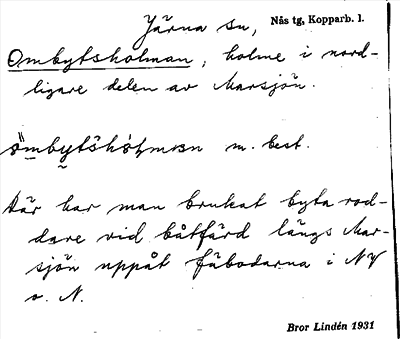 Järna sn, Nås tg, Kopparb. l.
Ombytsholman, holme i nord-
ligare delen av Marsjön.
ömbytshòɫmɐn m. best.
Där har man brukat byta rod-
dare vid båtfärd längs Mar-
sjön uppåt fäbodarna i NV
o. N.
Bror Lindén 1931